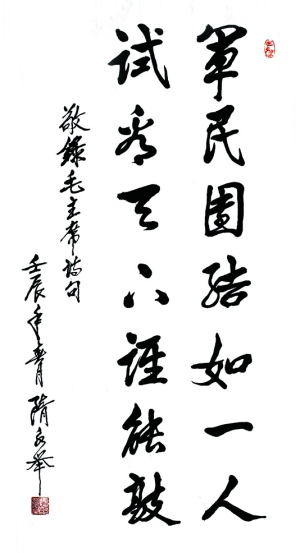 軍民團結如一人
試看天下誰能敵
敬錄毛主席詩句
壬辰年 隋